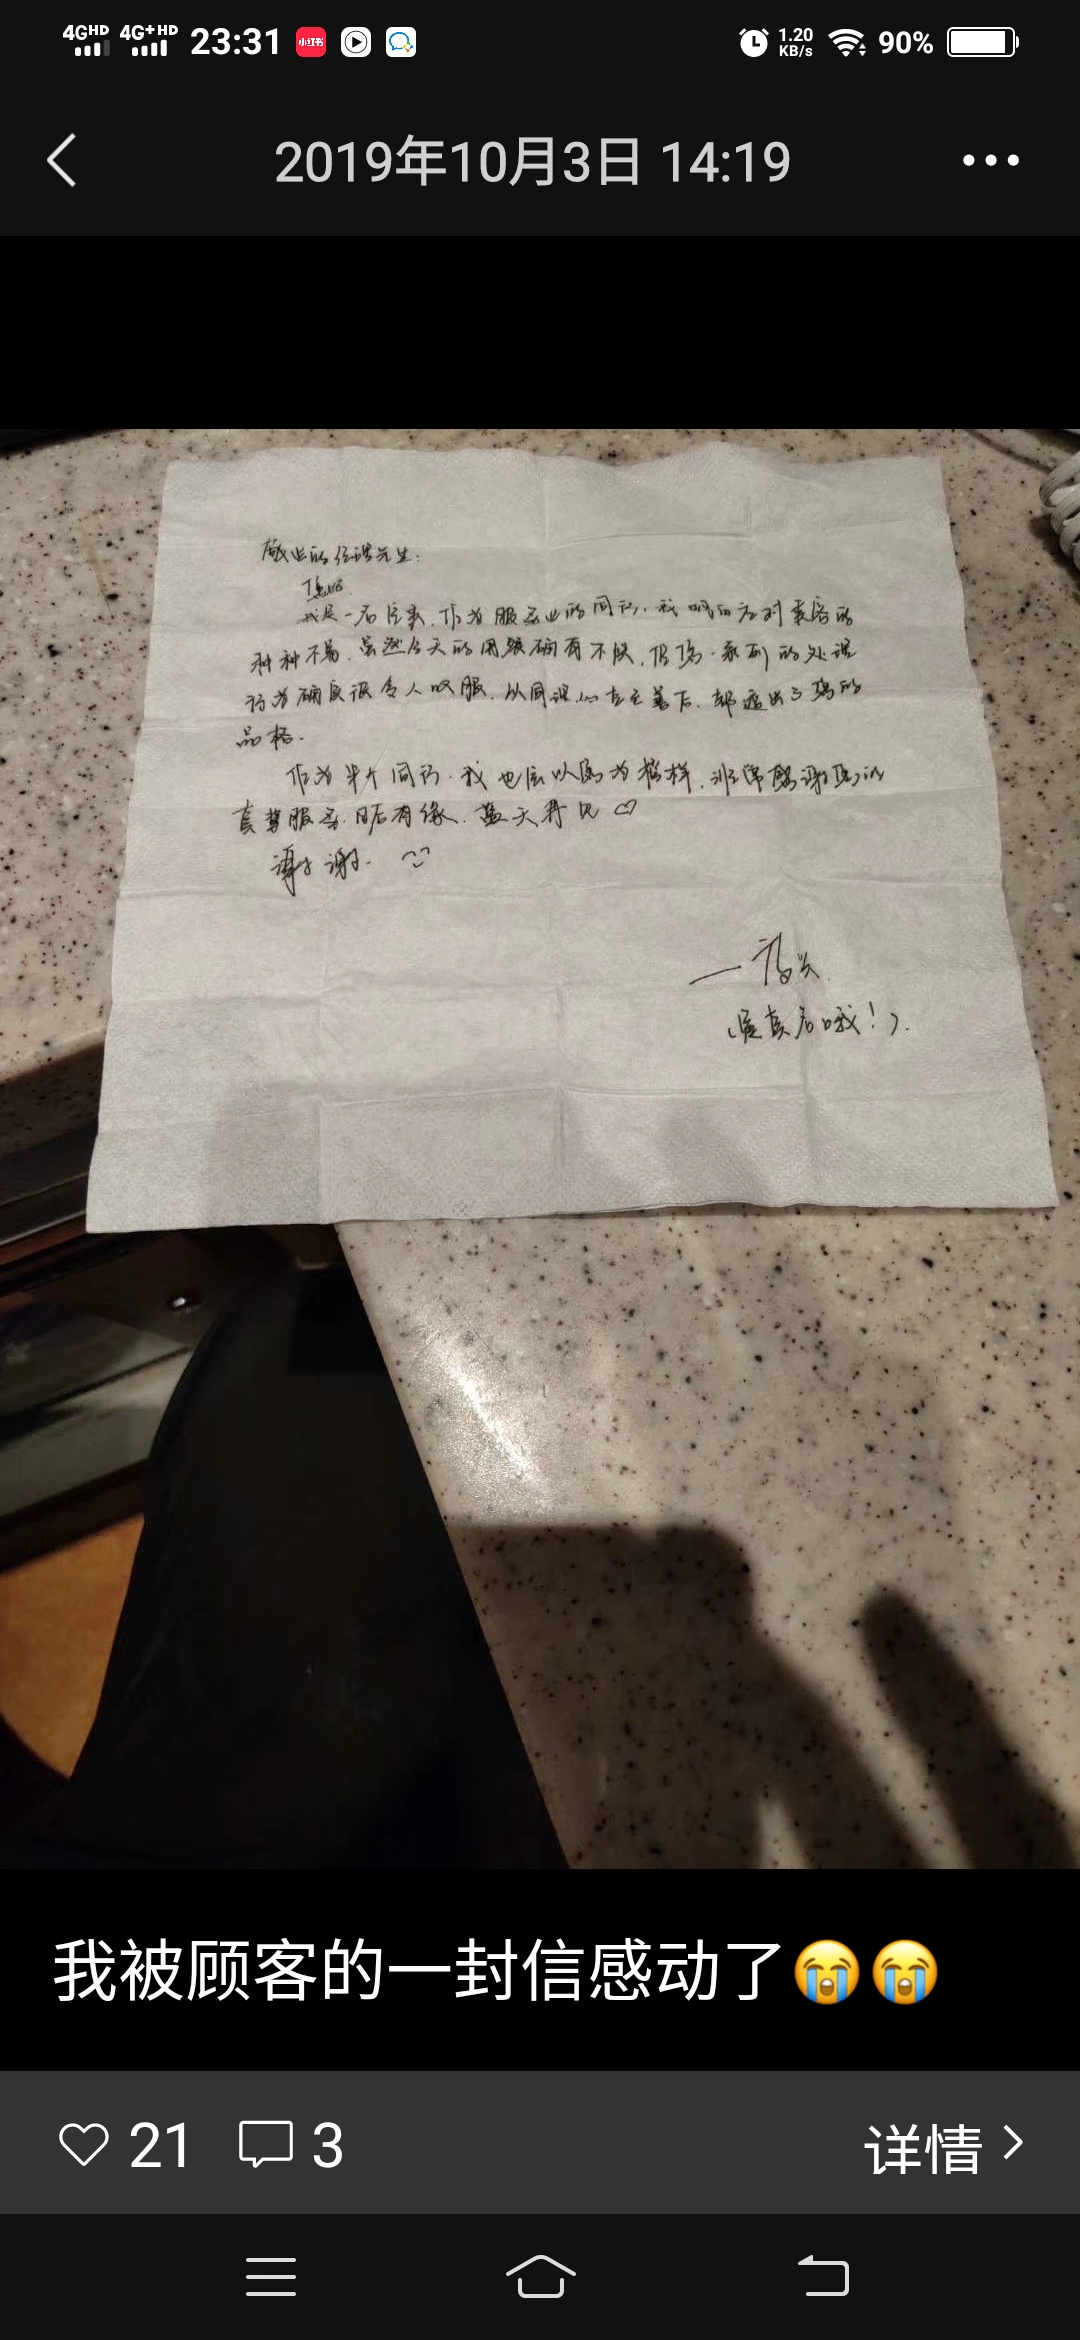 4GHD 4G+HD 23:31 小红书 1.20 KB/s 90%
2019年10月3日 14:19
敬业的经理先生:
您好.
我是一名空乘,作为服务业的同行,我明白应对乘客的
种种不易,虽然今天的用餐确有不快,但您一系列的处理
行为确实很令人叹服,从同理心直至善后,都透出了您的
品格.
作为半个同行,我也会以您为榜样,非常感谢您的
真挚服务,日后有缘,蓝天再见
谢谢.
我被顾客的一封信感动了😭😭
21 3 详情